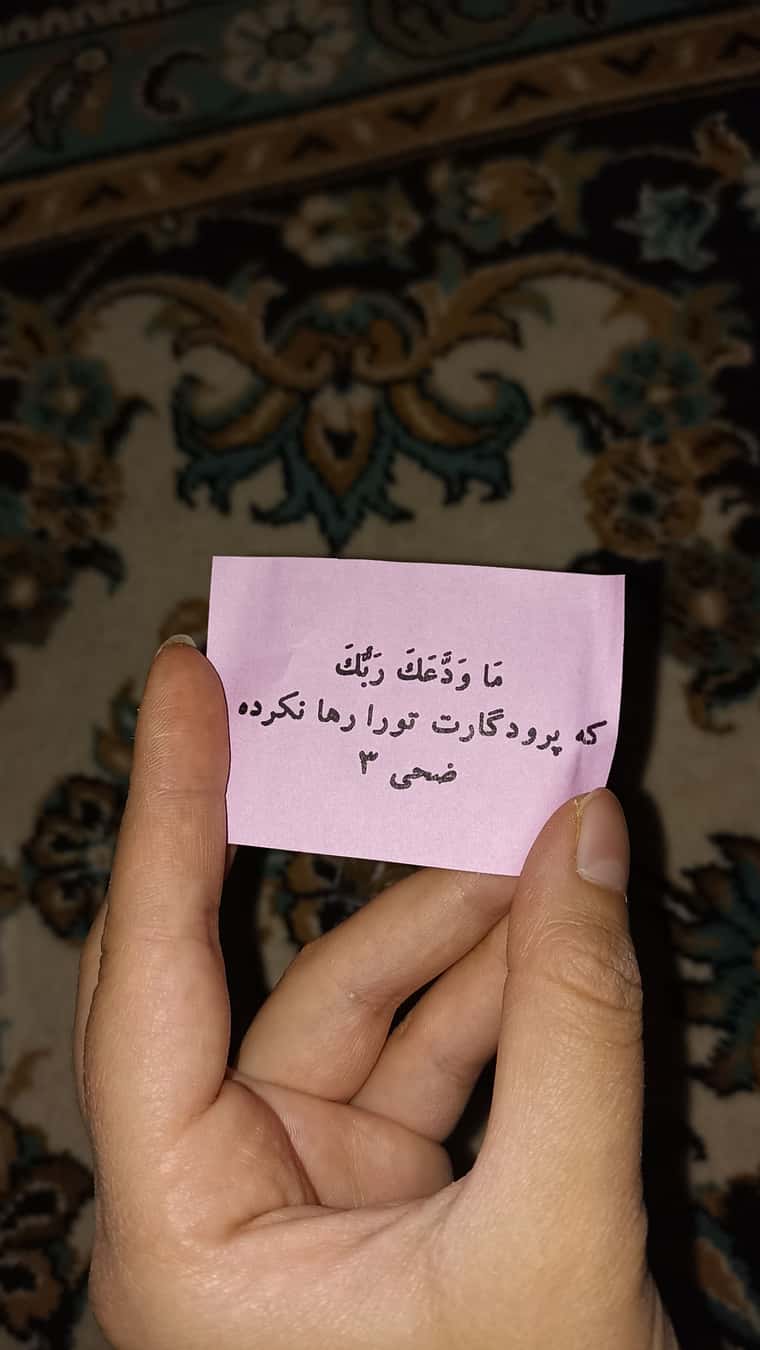 مَا وَدَّعَكَ رَبُّكَ
که پرودگارت تورا رها نکرده
ضحی ۳